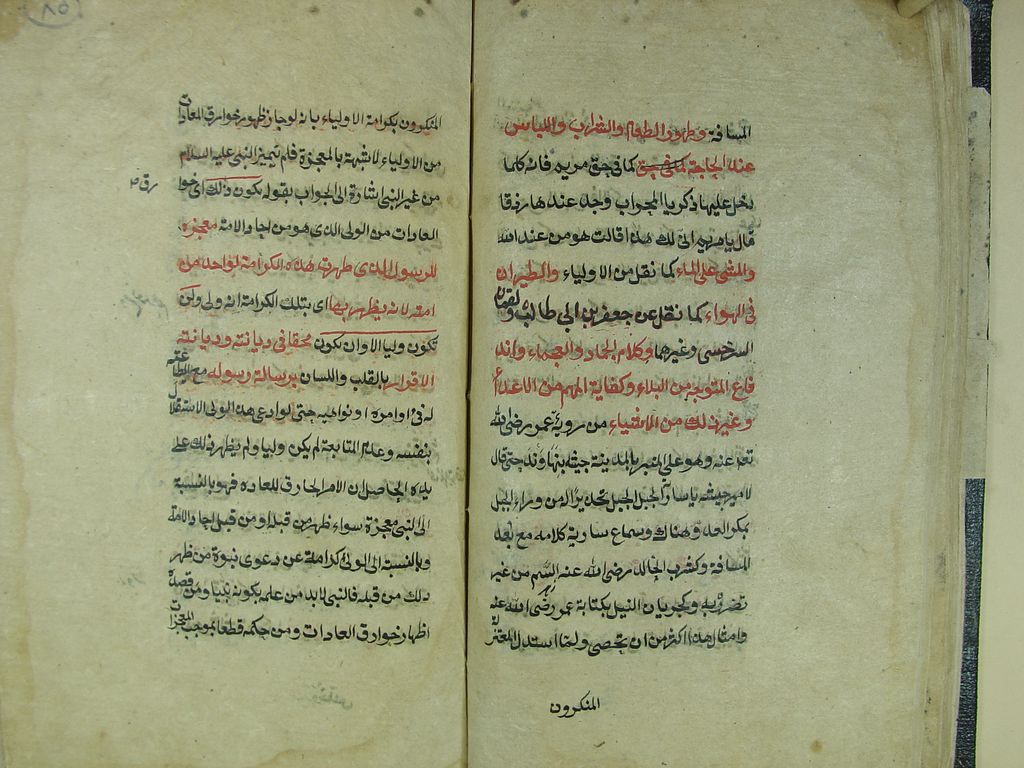 المسافة وظهور الطعام والشراب واللباس
عند الحاجة كما في حق كما في حق مريم فانه كلما
دخل عليها ذكريا المحراب وجد عندها رزقا
قال يا مريم انى لك هذا قالت هو من عند الله
والمشى على الماء كما نقل من الاولياء والطيران
فى الهواء كما نقل عن جعفر بن ابى طالب ولقمان
السرخسى وغيرهما وكلام الجماد والعجماء واند
فاع المتوجه من البلاء وكفاية المهم من الاعدأ
وغير ذلك من الاشياء من روية عمر رضى الله
تعم عنه وهو على المنبر بالمدينة جيشه بنهاوند حتى قال
لامير جيشه يا سارية الجبل الجبل تحذيرا له من وراء الجبل
بمكر العدو هناك وسماع سارية كلامه مع بعد
المسافة وكشرب الخالد رضى الله عنه السم من غير
تضرر به وكجريان النيل بكتابة عمر رضى الله عنه
وامثال هذا اكثر من ان تحصى ولما استدل المعتزلة
المنكرون
٨٥
المنكرون بكرامة الاولياء بانه لو جاز ظهور خوارق العادات
من الاولياء لاشبهة بالمعجزة فلم تتميز النبى عليه السلام
من غير النبى اشارة الى الجواب بقوله يكون ذلك اى خوا
رق ص
العادات من الولى الذى هو من احاد الامة معجزة
للرسول الذى ظهرت هذه الكرامة لواحد من
امته لانه يظهر بها اى بتلك الكرامة انه ولى ولن
تكون وليا الا وان تكون محقا فى ديانته وديانته
الاقرار بالقلب واللسان برسالة رسوله مع الطاعته
له فى اوامره ونواهيه حتى لو ادعى هذا الولى الاستقلال
بنفسه وعدم المتابعة لم يكن وليا ولم يظهر ذلك على
يده الحاصل ان الامر الخارق للعاده فهو بالنسبة
الى النبى معجزة سواء ظهر من قبله او من قبل احاد الامة
وبالنسبة الى الولى كرامة عن دعوى نبوة من ظهر
ذلك من قبله فالنبى لا بد من علمه بكونه نبيا ومن قصده
اظهار خوارق العادات ومن حكمه قطعا بموجب المعجزات